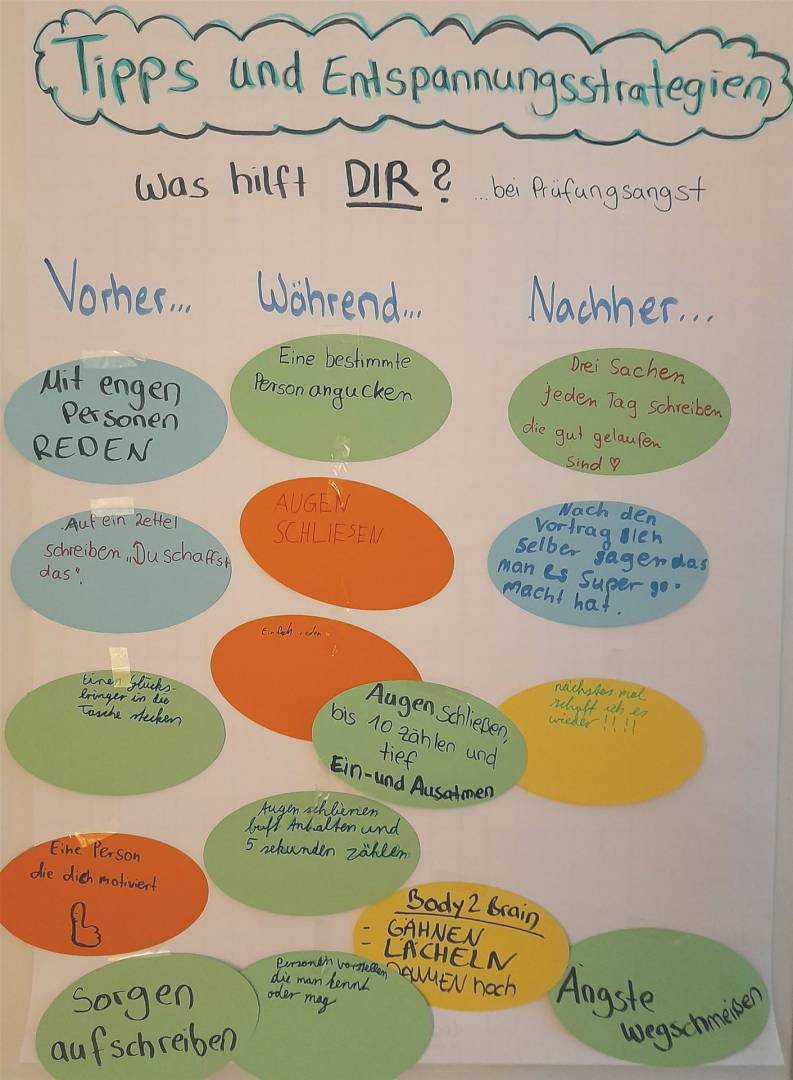 Tipps und Entspannungsstrategien
Was hilft DIR? ...bei Prüfungsangst
Vorher...
Mit engen
Personen
REDEN
Auf ein Zettel
schreiben „Du schaffst
das".
Einen Glücks-
bringer in die
Tasche stecken
Eine Person
die dich motiviert
Sorgen
aufschreiben
Während...
Eine bestimmte
Person angucken
AUGEN
SCHLIESEN
Einfach reden
Augen schließen,
bis 10 zählen und
tief
Ein- und Ausatmen
Augen schlienen
luft Anhalten und
5 sekunden zählen
Body 2 Brain
- GÄHNEN
- LÄCHELN
DAUMEN hoch
Personen vorstellen
die man kennt
oder mag
Nachher...
Drei Sachen
jeden Tag schreiben
die gut gelaufen
sind ♡
Nach den
Vortrag sich
selber sagen das
man es super ge-
macht hat.
nächstes mal
schaff ich es
wieder!!!!
Ängste
wegschmeißen